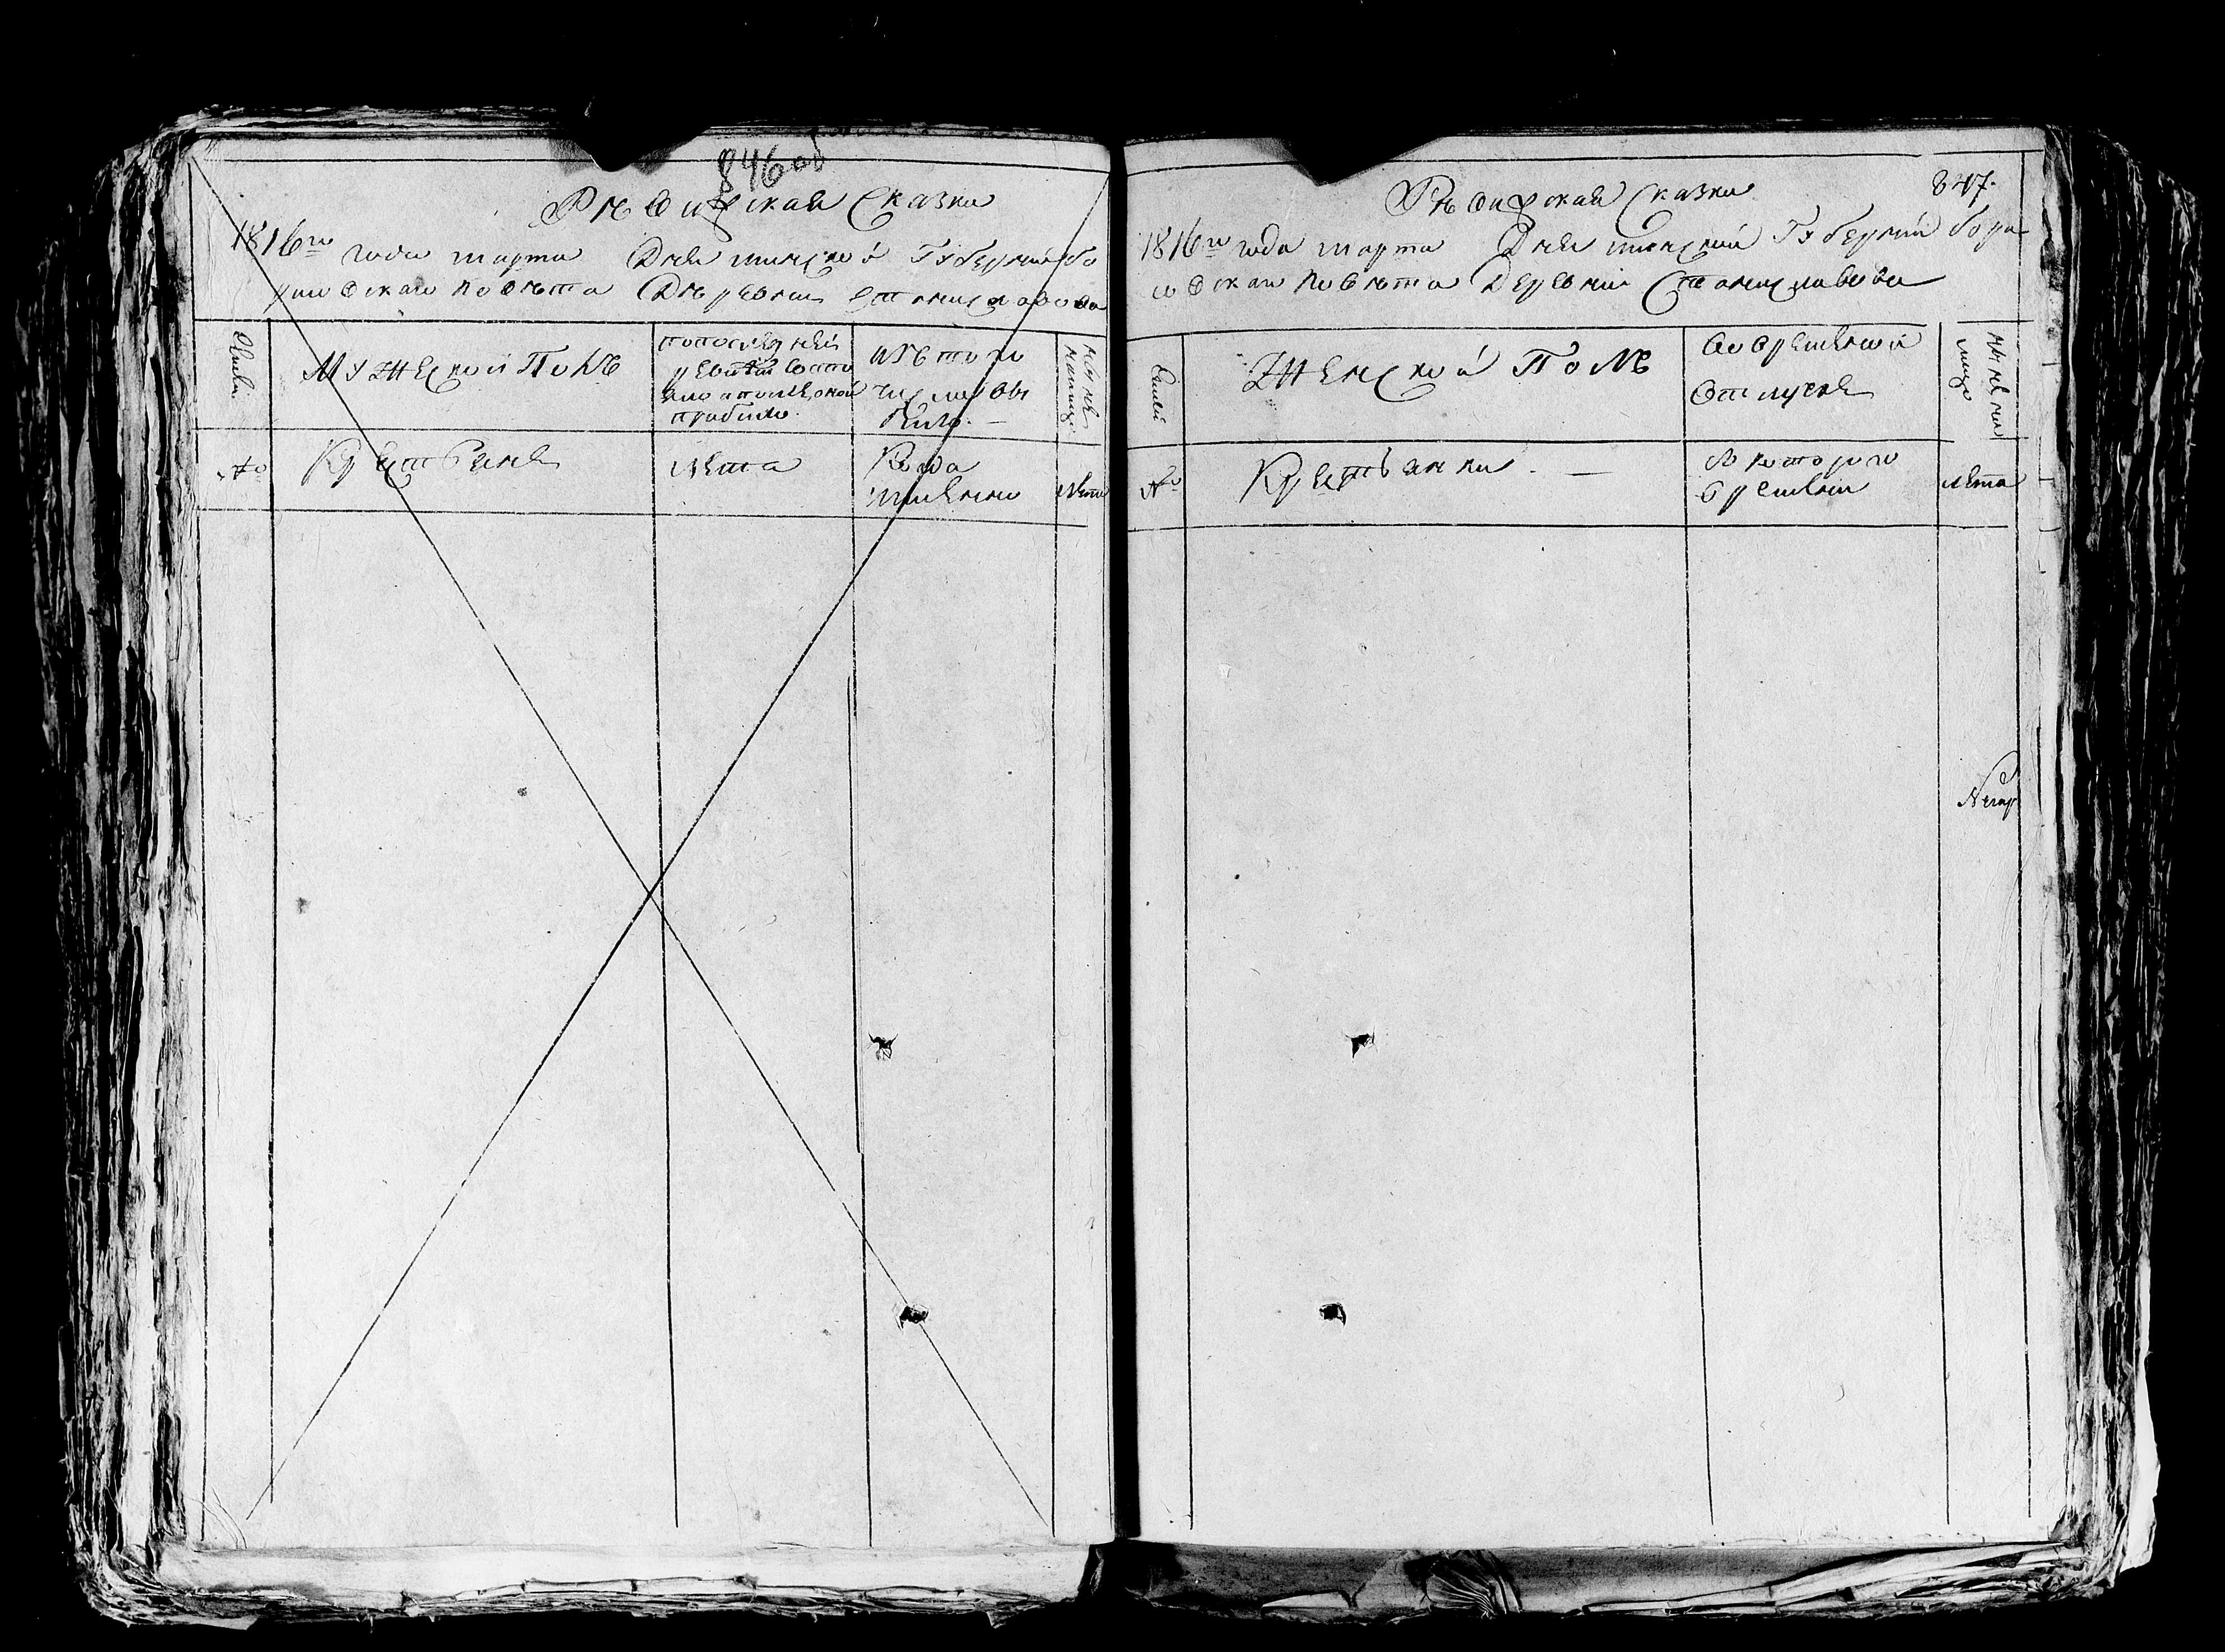 846 об
Ревизская Сказка
1816го года марта Дня минской Губернии бо
рисовскаго Повѣта Деревни Станиславова
Семьи
Мужеской Полъ
по последней
ревизии состо
яло и после оной
прибыло
Изъ того
числа вы
было. —
Ныне
налицо
№
Крестьяне
лета
Когда
имянно
лета
847.
Ревизская Сказка
1816го года марта Дня минской Губернии бори
совскаго Повѣта Деревни Станиславова
Семьи
Женской Полъ
Во временной
отлучке
Ныне на
лицо
№
Крестьянки. —
С котораго
времени
лета